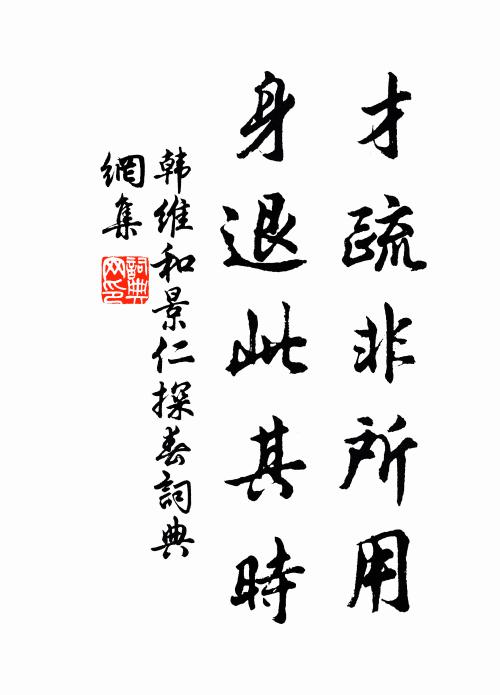 才疏非所用
身退此其時
韩維和景仁探春詞典
網集
詞典網印